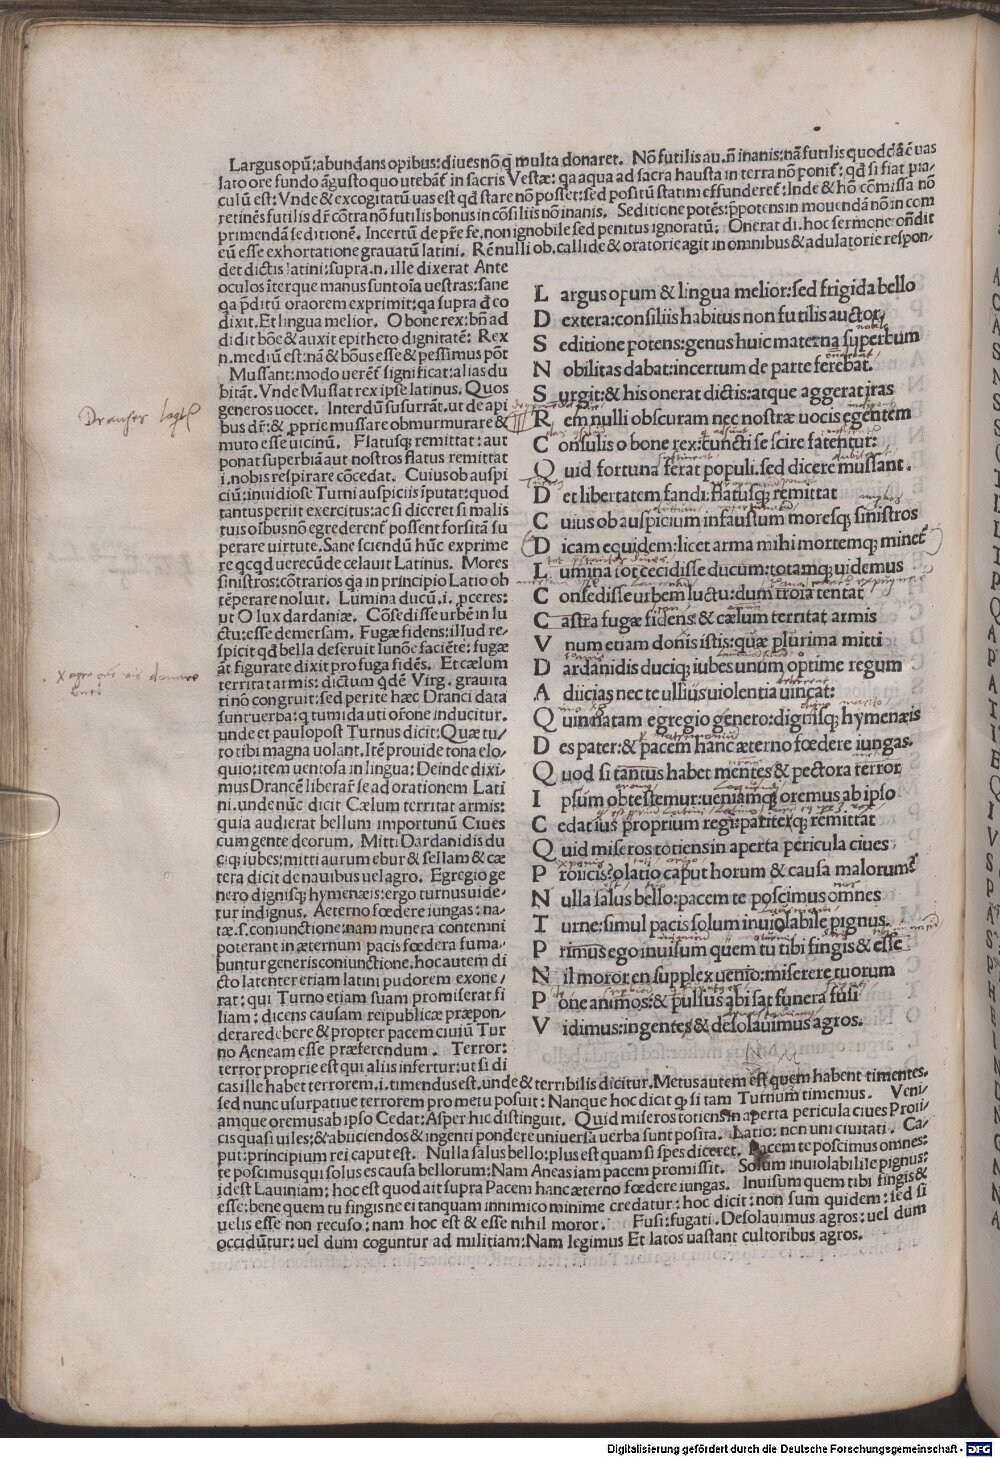 Largus opū:abundans opibus:diues nō q̄ multa donaret. Nō futilis au.n̄ inanis:nā futilis quoddā ē uas
lato ore fundo āgusto quo utebāt in sacris Vestæ: qa aqua ad sacra hausta in terra nō poniť: qđ si fiat pia-
culū est: Vnde & excogitatū uas est qđ stare nō posset: sed positū statim effunderet: Inde & hō cōmissa nō
retinēs futilis dr̄ cōtra nō futilis bonus in cōsiliis nō inanis. Seditione potēs: p̄potens in mouenda nō in com
primenda seditionē. Incertū de pr̄e fe. non ignobile sed penitus ignoratū. Onerat di. hoc sermone oñdit
eū esse exhortatione grauatū latini. Rē nulli ob. callide & oratorie agit in omnibus & adulatorie respon-
det dictis latini: supra.n. ille dixerat Ante
oculos iterque manus sunt oīa uestras: sane
qa p̄ditū oraorem exprimit: qa supra đ eo
dixit. Et lingua melior. O bone rex: bn̄ ad
didit bōe & auxit epitheto dignitatē: Rex
n. mediū est: nā & bōus esse & pessimus pōt
Mussant: modo uerēť significat: alias du
bitāt. Vnde Mussat rex ipse latinus. Quos
generos uocet. Interdū susurrāt. ut de api
bus dr̄: & ꝓprie mussare obmurmurare &
muto esse uicinū. Flatusq; remittat: aut
ponat superbiā aut nostros flatus remittat
i. nobis respirare cōcedat. Cuius ob auspi
ciū: inuidiose Turni auspiciis īputat: quod
tantus periit exercitus: ac si diceret si malis
tuis oībus nō egrederenť possent forsitā su
perare uirtute. Sane sciendū hūc exprime
re qcqd uerecūde celauit Latinus. Mores
sinistros: cōtrarios qa in principio Latio ob
tēperare noluit. Lumina ducū.i. pceres:
ut O lux dardaniæ. Cōsedisse urbē in lu
ctu: esse demersam. Fugæ fidens: illud re-
spicit qđ bella deseruit Iunōe faciēte: fugæ
āt figurate dixit pro fuga fidēs. Et cælum
territat armis: dictum qdē Virg. grauita
ti nō congruit: sed perite hæc Dranci data
sunt uerba: q tumida uti or̄one inducitur.
unde et paulo post Turnus dicit: Quæ tu-
to tibi magna uolant. Itē prouide tona elo-
quio: item uentosa in lingua: Deinde dixi-
mus Drancē liberař se ad orationem Lati
ni. unde nūc dicit Cælum territat armis:
quia audierat bellum importunū Ciues
cum gente deorum. Mitti Dardanidis du
ciq; iubes: mitti aurum ebur & sellam & cæ
tera dicit de nauibus uel agro. Egregio ge
nero dignisq; hymenæis: ergo turnus uide-
tur indignus. Aeterno fœdere iungas: na-
tæ.s. coniunctione: nam munera contemni
poterant in æternum pacis fœdera suma-
buntur generis coniunctione, hoc autem di
cto latenter etiam latini pudorem exone-
rat: qui Turno etiam suam promiserat fi
liam: dicens causam reipublicæ præpon-
derare debere & propter pacem ciuiū Tur
no Aeneam esse præferendum. Terror:
terror proprie est qui aliis infertur: ut si di
cas ille habet terrorem.i. timendus est. unde & terribilis dicitur. Metus autem est quem habent timentes.
sed nunc usurpatiue terrorem pro metu posuit: Nanque hoc dicit q̄ si tam Turnum timemus. Veni-
amque oremus ab ipso Cedat: Asper hic distinguit. Quid miseros totiens in aperta pericula ciues Proii-
cis quasi uiles: & abiiciendos & ingenti pondere uniuersa uerba sunt posita. Latio: non uni ciuitati. Ca-
put: principium rei caput est. Nulla salus bello: plus est quam si spes diceret. Pacem te poscimus omnes:
te poscimus qui solus es causa bellorum: Nam Aneas iam pacem promissit. Solum inuiolabilile pignus:
idest Lauiniam: hoc est quod ait supra Pacem hanc æterno fœdere iungas. Inuisum quem tibi fingis &
esse: bene quem tu fingis ne ei tanquam innimico minime credatur: hoc dicit: non sum quidem: sed si
uelis esse non recuso: nam hoc est & esse nihil moror. Fusi: fugati. Desolauimus agros: uel dum
occidūtur: uel dum coguntur ad militiam: Nam legimus Et latos uastant cultoribus agros.
L argus opum & lingua melior: sed frigida bello
D extera: consiliis habitus non futilis auctor,
S editione potens: genus huic materna superbum
N obilitas dabat: incertum de parte ferebat.
S urgit: & his onerat dictis: atque aggerat iras
R em nulli obscuram nec nostræ uocis egentem
C onsulis o bone rex: cuncti se scire fatentur:
Q uid fortuna ferat populi. sed dicere mussant.
D et libertatem fandi: flatusq; remittat
C uius ob auspicium infaustum moresq; sinistros
D icam equidem: licet arma mihi mortemq; mineť
L umina tot cecidisse ducum: totamq; uidemus
C onsedisse urbem luctu: dum troia tentat
C astra fugæ fidens: & cælum territat armis
V num etiam donis istis: quæ plurima mitti
D ardanidis duciq; iubes unum optime regum
A diicias nec te ullius uiolentia uincat:
Q uin natam egregio genero: dignisq; hymenæis
D es pater: & pacem hanc æterno fœdere iungas.
Q uod si tantus habet mentes & pectora terror
I psum obtestemur: ueniamq; oremus ab ipso
C edat ius proprium regi: patriæq; remittat
Q uid miseros totiens in aperta pericula ciues
P roiicis? o latio caput horum & causa malorum?
N ulla salus bello: pacem te poscimus omnes
T urne: simul pacis solum inuiolabile pignus.
P rimus ego inuisum quem tu tibi fingis & esse
N il moror en supplex uenio: miserere tuorum
P one animos: & pulsus abi sat funera fusi
V idimus: ingentes & desolauimus agros.
Digitalisierung gefördert durch die Deutsche Forschungsgemeinschaft - DFG